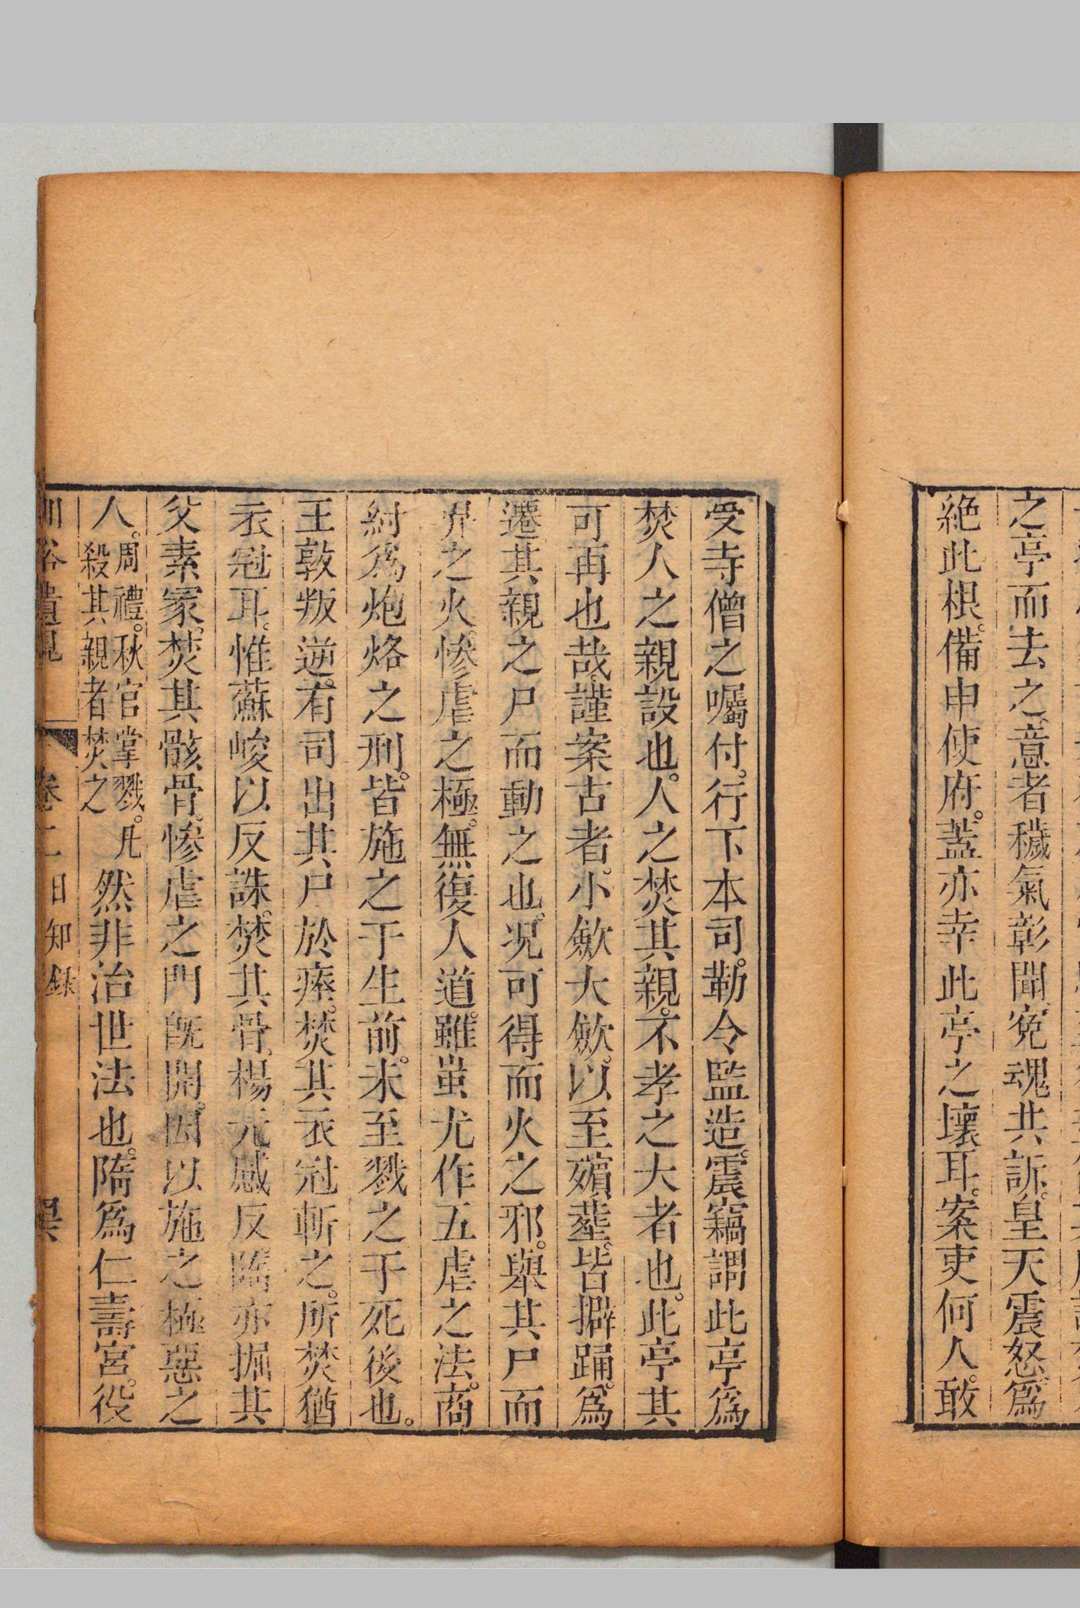 之亭而去之意者穢氣彰聞寃魂共訴皇天震怒爲
絶此根備申使府蓋亦幸此亭之壞耳案吏何人敢
受寺僧之囑付行下本司勒令監造震竊謂此亭爲
焚人之親設也人之焚其親不孝之大者也此亭其
可再也哉謹案古者小歛大歛以至殯葬皆擗踊爲
遷其親之尸而動之也况可得而火之邪舉其尸而
畀之火慘虐之極無復人道雖蚩尤作五虐之法商
紂爲炮烙之刑皆施之于生前未至戮之于死後也
王敦叛逆有司出其尸於瘞焚其衣冠斬之所焚猶
衣冠耳惟蘇峻以反誅焚其骨楊元感反隋亦掘其
父素冢焚其骸骨慘虐之門旣開因以施之極惡之
人周禮秋官掌戮凡
殺其親者焚之
然非治世法也隋爲仁壽宮役
卷二日知錄